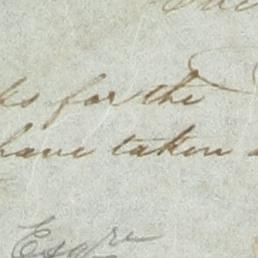 for the
have taken
Esqre